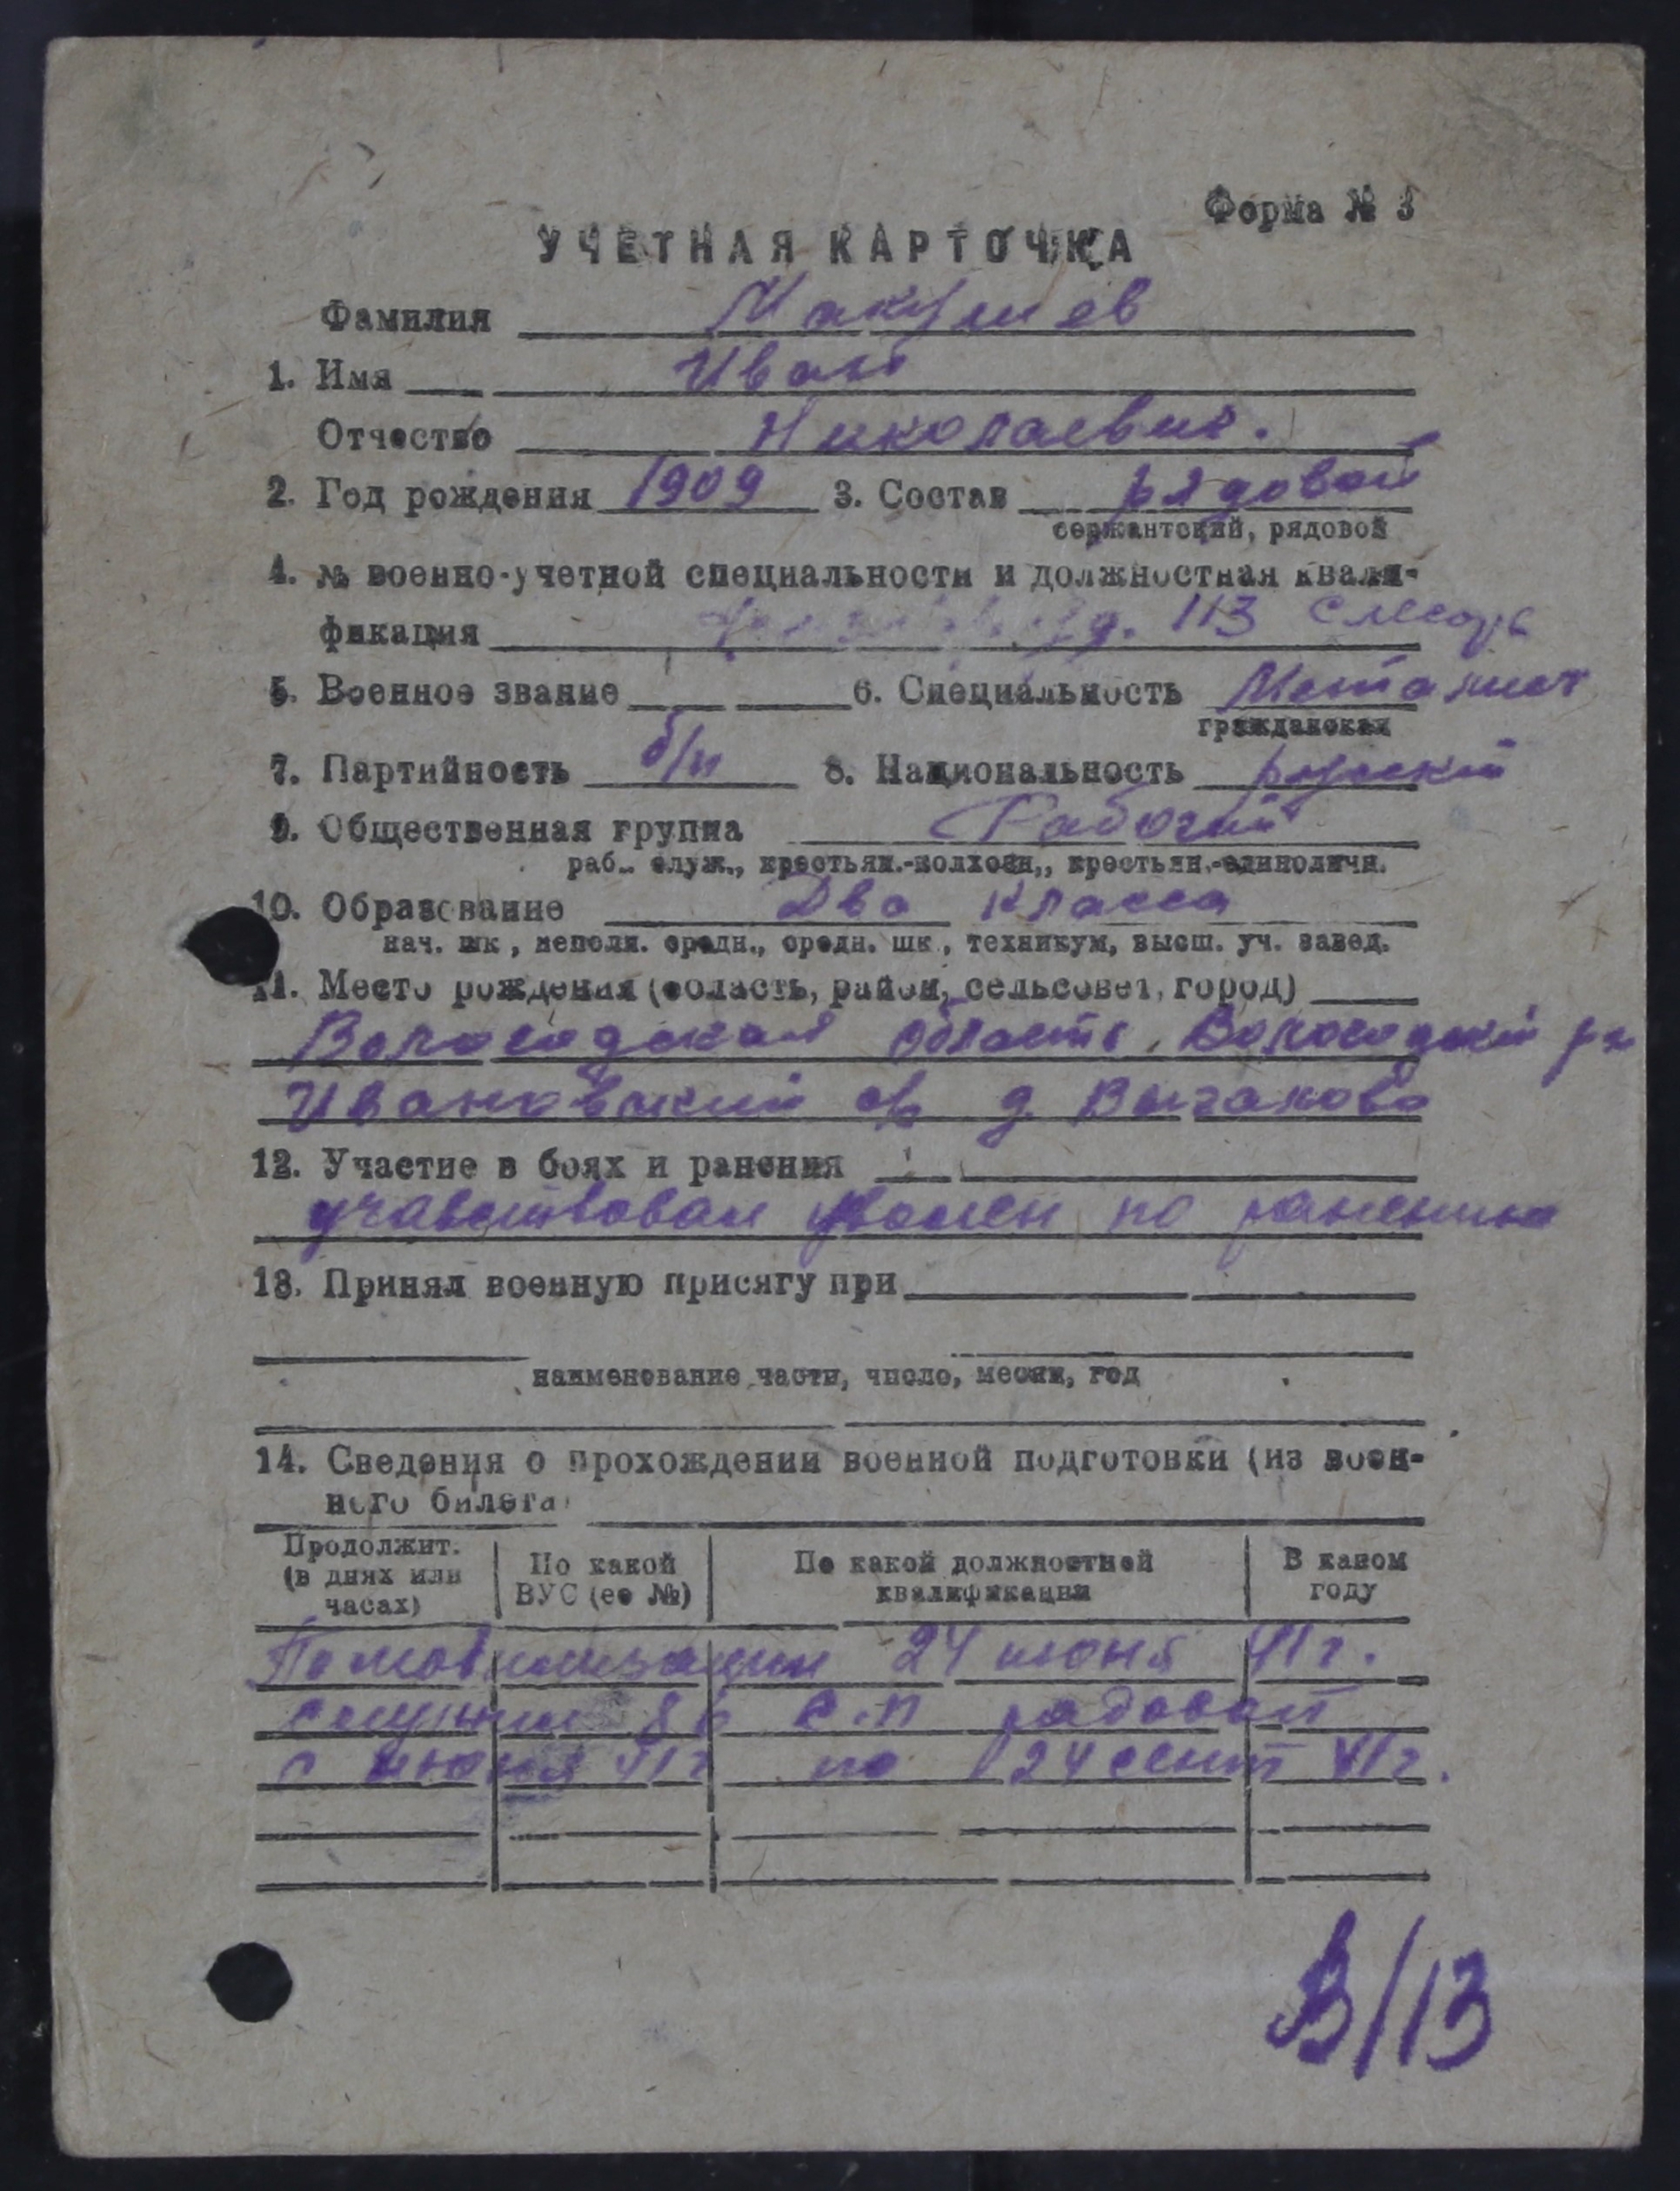 Форма № 3
УЧЕТНАЯ КАРТОЧКА
Фамилия Макушев
1. Имя Иван
Отчество Николаевич.
2. Год рождения 1909 3. Состав рядовой
сержантский, рядовой
4. № военно-учетной специальности и должностная квали-
фикация 113 слесарь
5. Военное звание 6. Специальность Металист
гражданская
7. Партийность б/п 8. Национальность руский
9. Общественная группа Рабочий
раб., служ., крестьян.-колхозн., крестьян.-единоличн.
10. Образование Два класса
нач. шк, неполн. средн., средн. шк, техникум, высш. уч. завед.
11. Место рождения (область, район, сельсовет, город)
Вологодская область, Вологодский р-н
Ивановский с/с д
12. Участие в боях и ранения
учавствовал уволен по ранению
13. Принял военную присягу при
наименование части, число, месяц, год
14. Сведения о прохождении военной подготовки (из воен-
ного билета)
Продолжит. (в днях или часах) По какой ВУС (ее №) По какой должностной квалификации В каком году
По мобилизации 24 июня 41 г.
служил с.п рядовой
с июня 41 г по 24 сент 41 г.
В/13